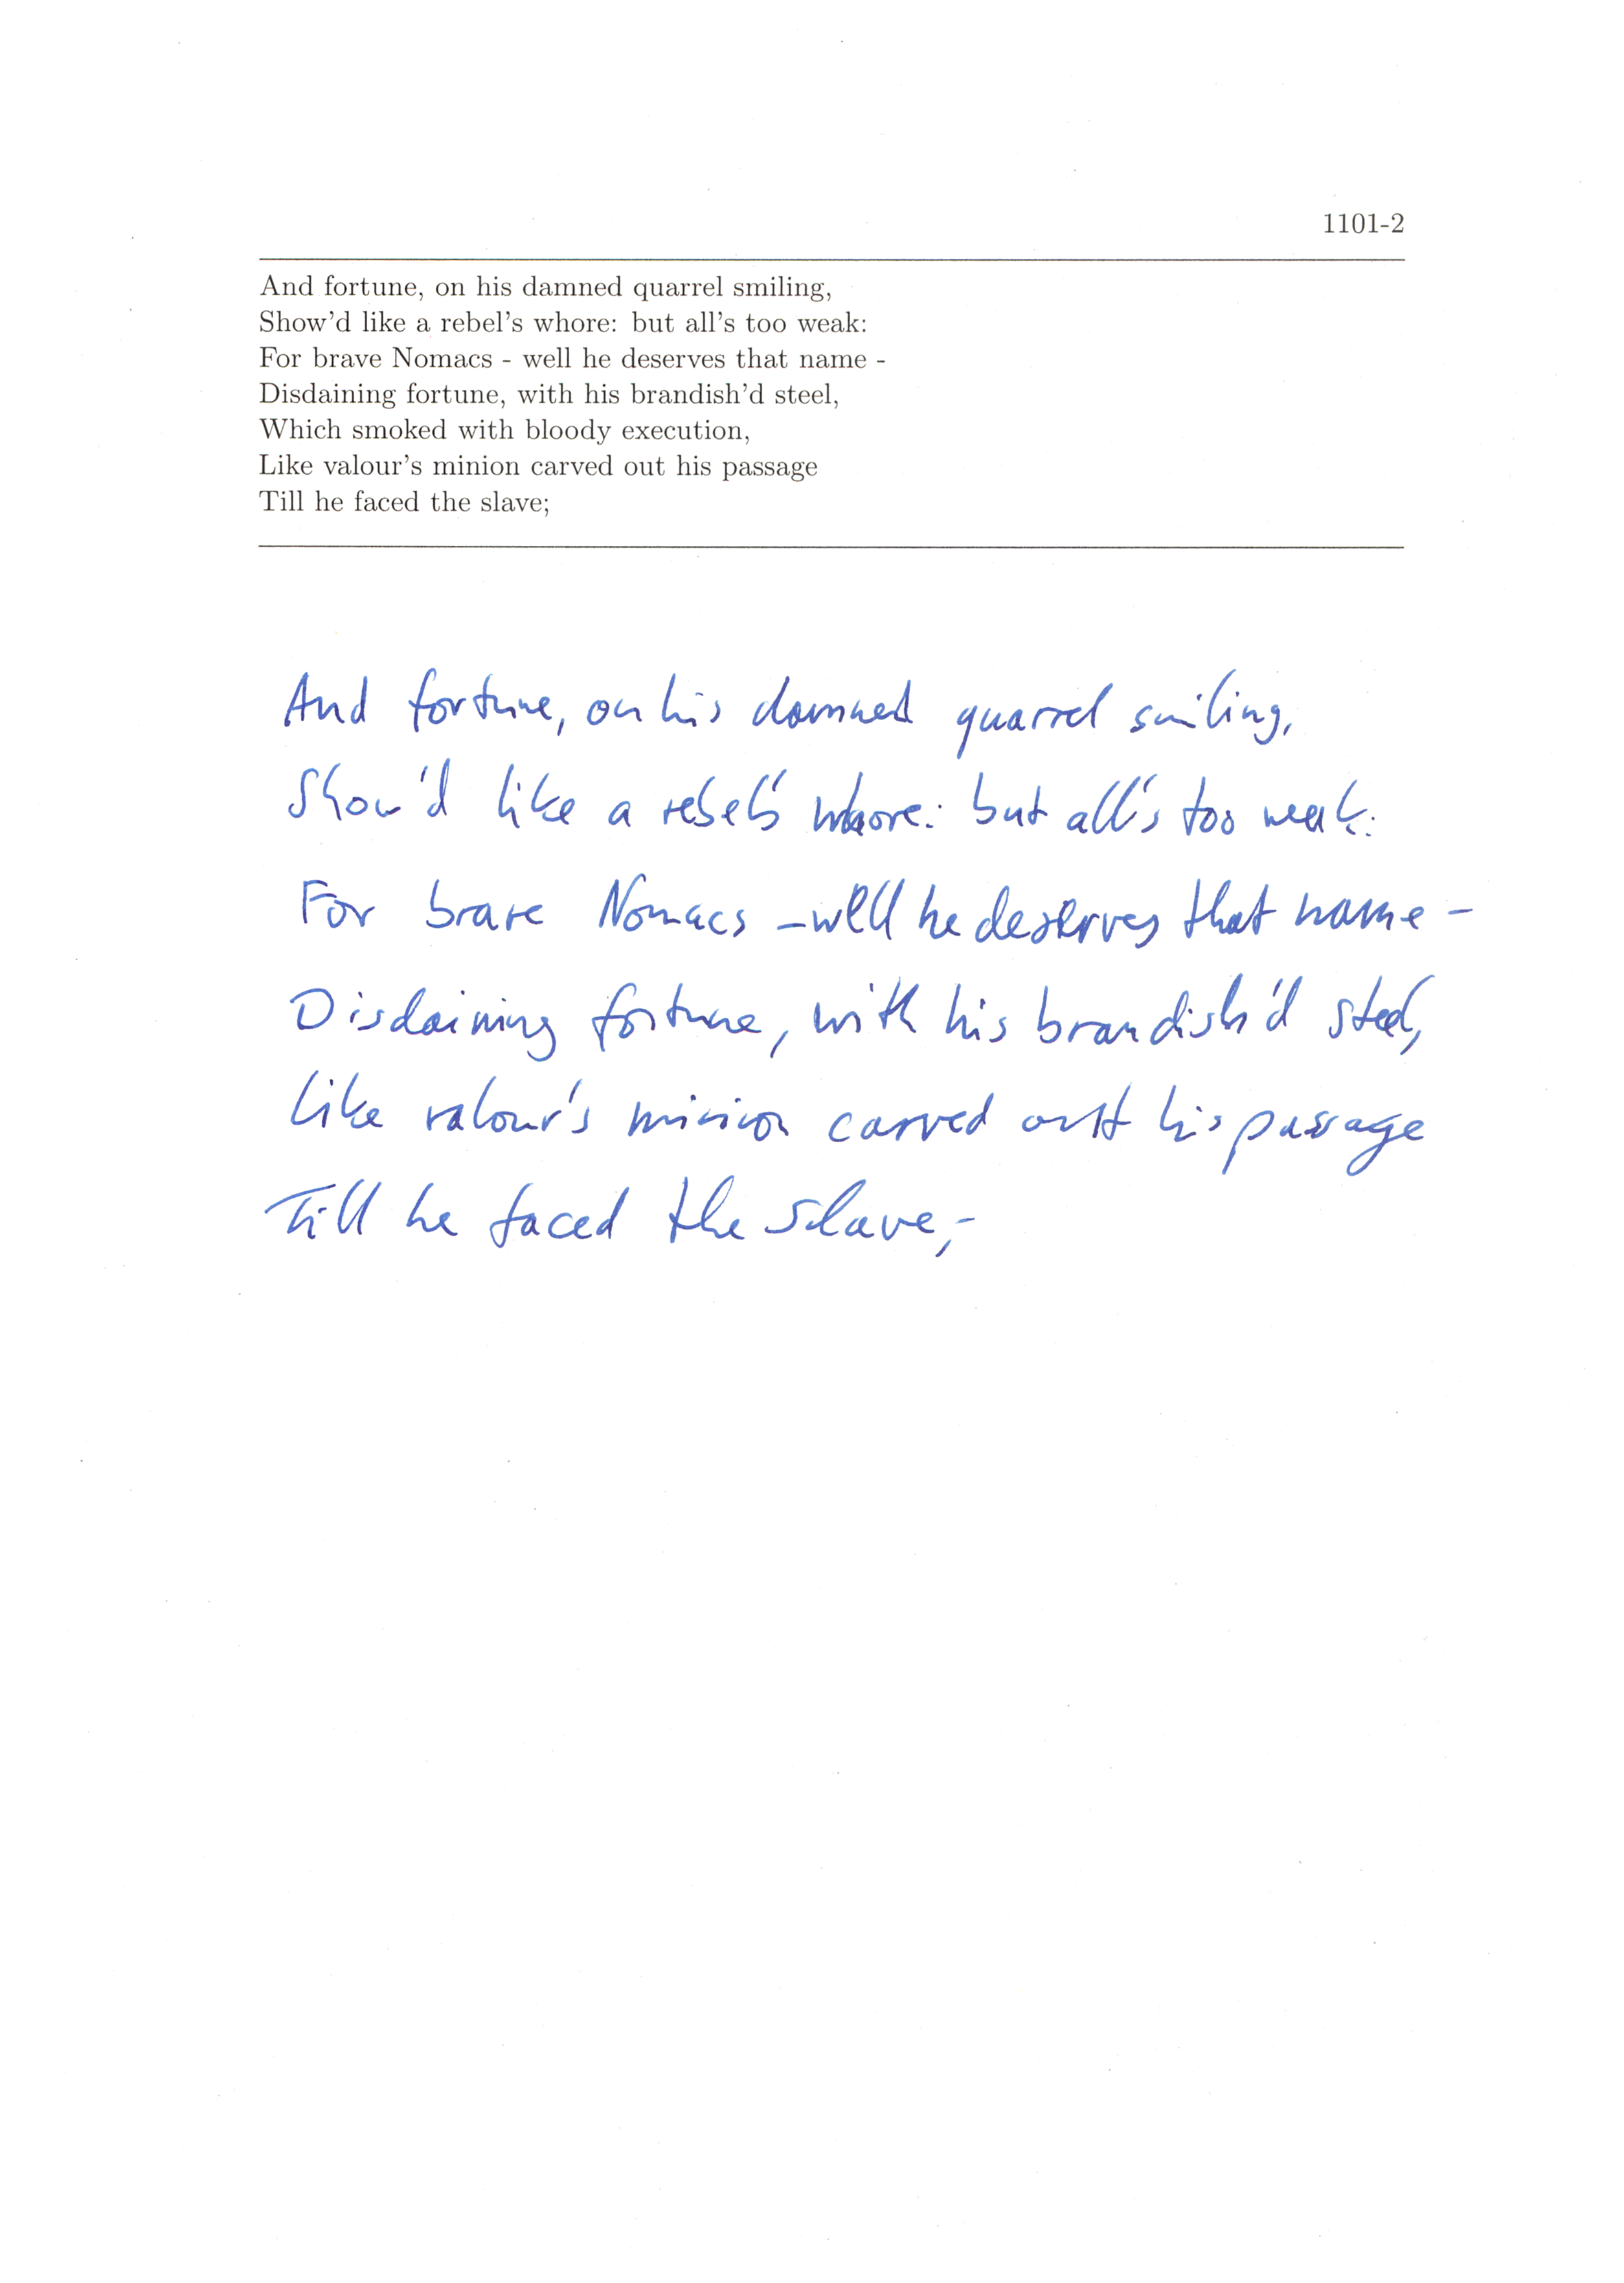 1101-2
And fortune, on his damned quarrel smiling,
Show'd like a rebel's whore: but all's too weak:
For brave Nomacs - well he deserves that name -
Disdaining fortune, with his brandish'd steel,
Which smoked with bloody execution,
Like valour's minion carved out his passage
Till he faced the slave;
And fortune, on his damned quarrel smiling,
Show'd like a rebel's whore: but all's too weak:
For brave Nomacs - well he deserves that name -
Disdaining fortune, with his brandish'd steel,
like valour's minion carved out his passage
Till he faced the slave,-